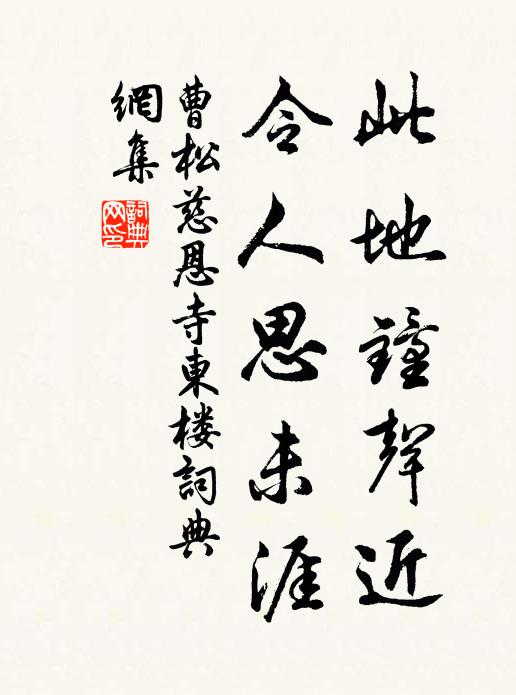 此地鐘聲近
令人思未涯
曹松慈恩寺東楼詞典
網集
詞典网印